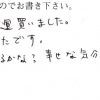 のでお書き下さい。
買いました。
たです。
るかな？幸せな気分